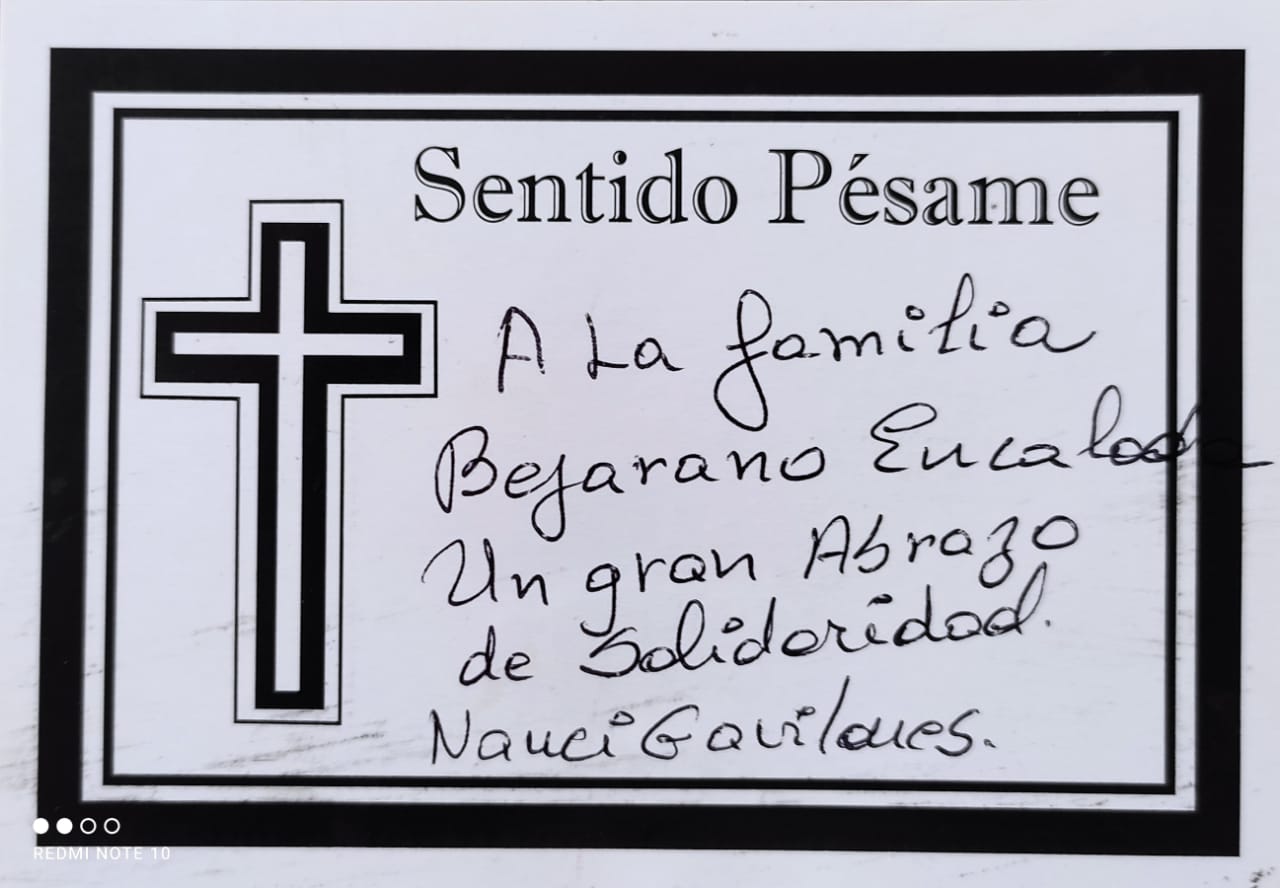 Sentido Pésame
A La familia
Bejarano Encalada
Un gran Abrazo
de Solidaridad.
Nanci Gavilanes.
REDMI NOTE 10